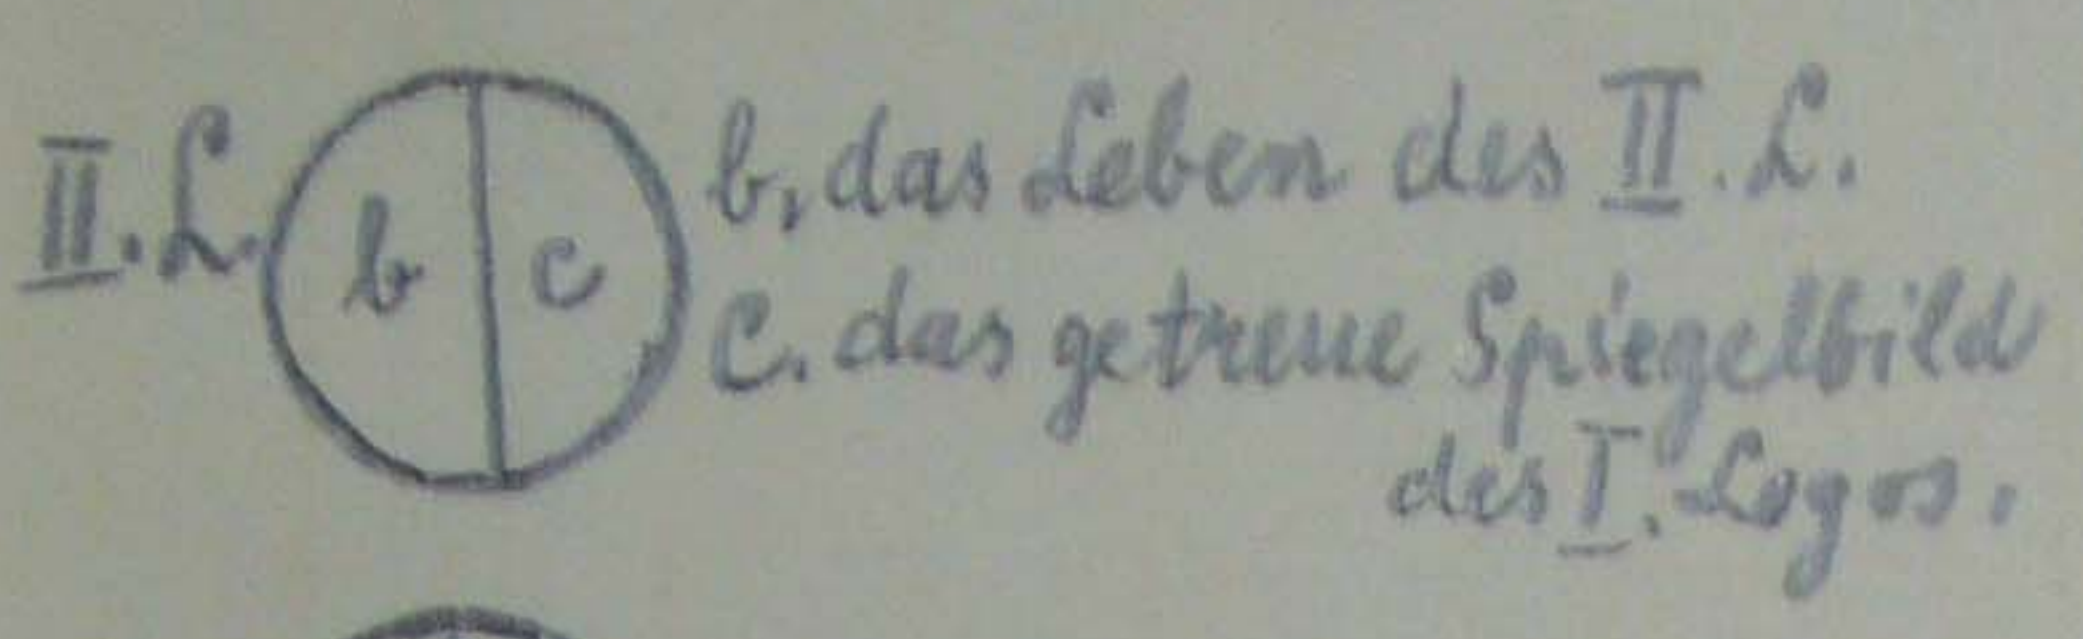 II. L.
b c
b, das Leben des II. L.
c. das getreue Spiegelbild
des I. Logos.